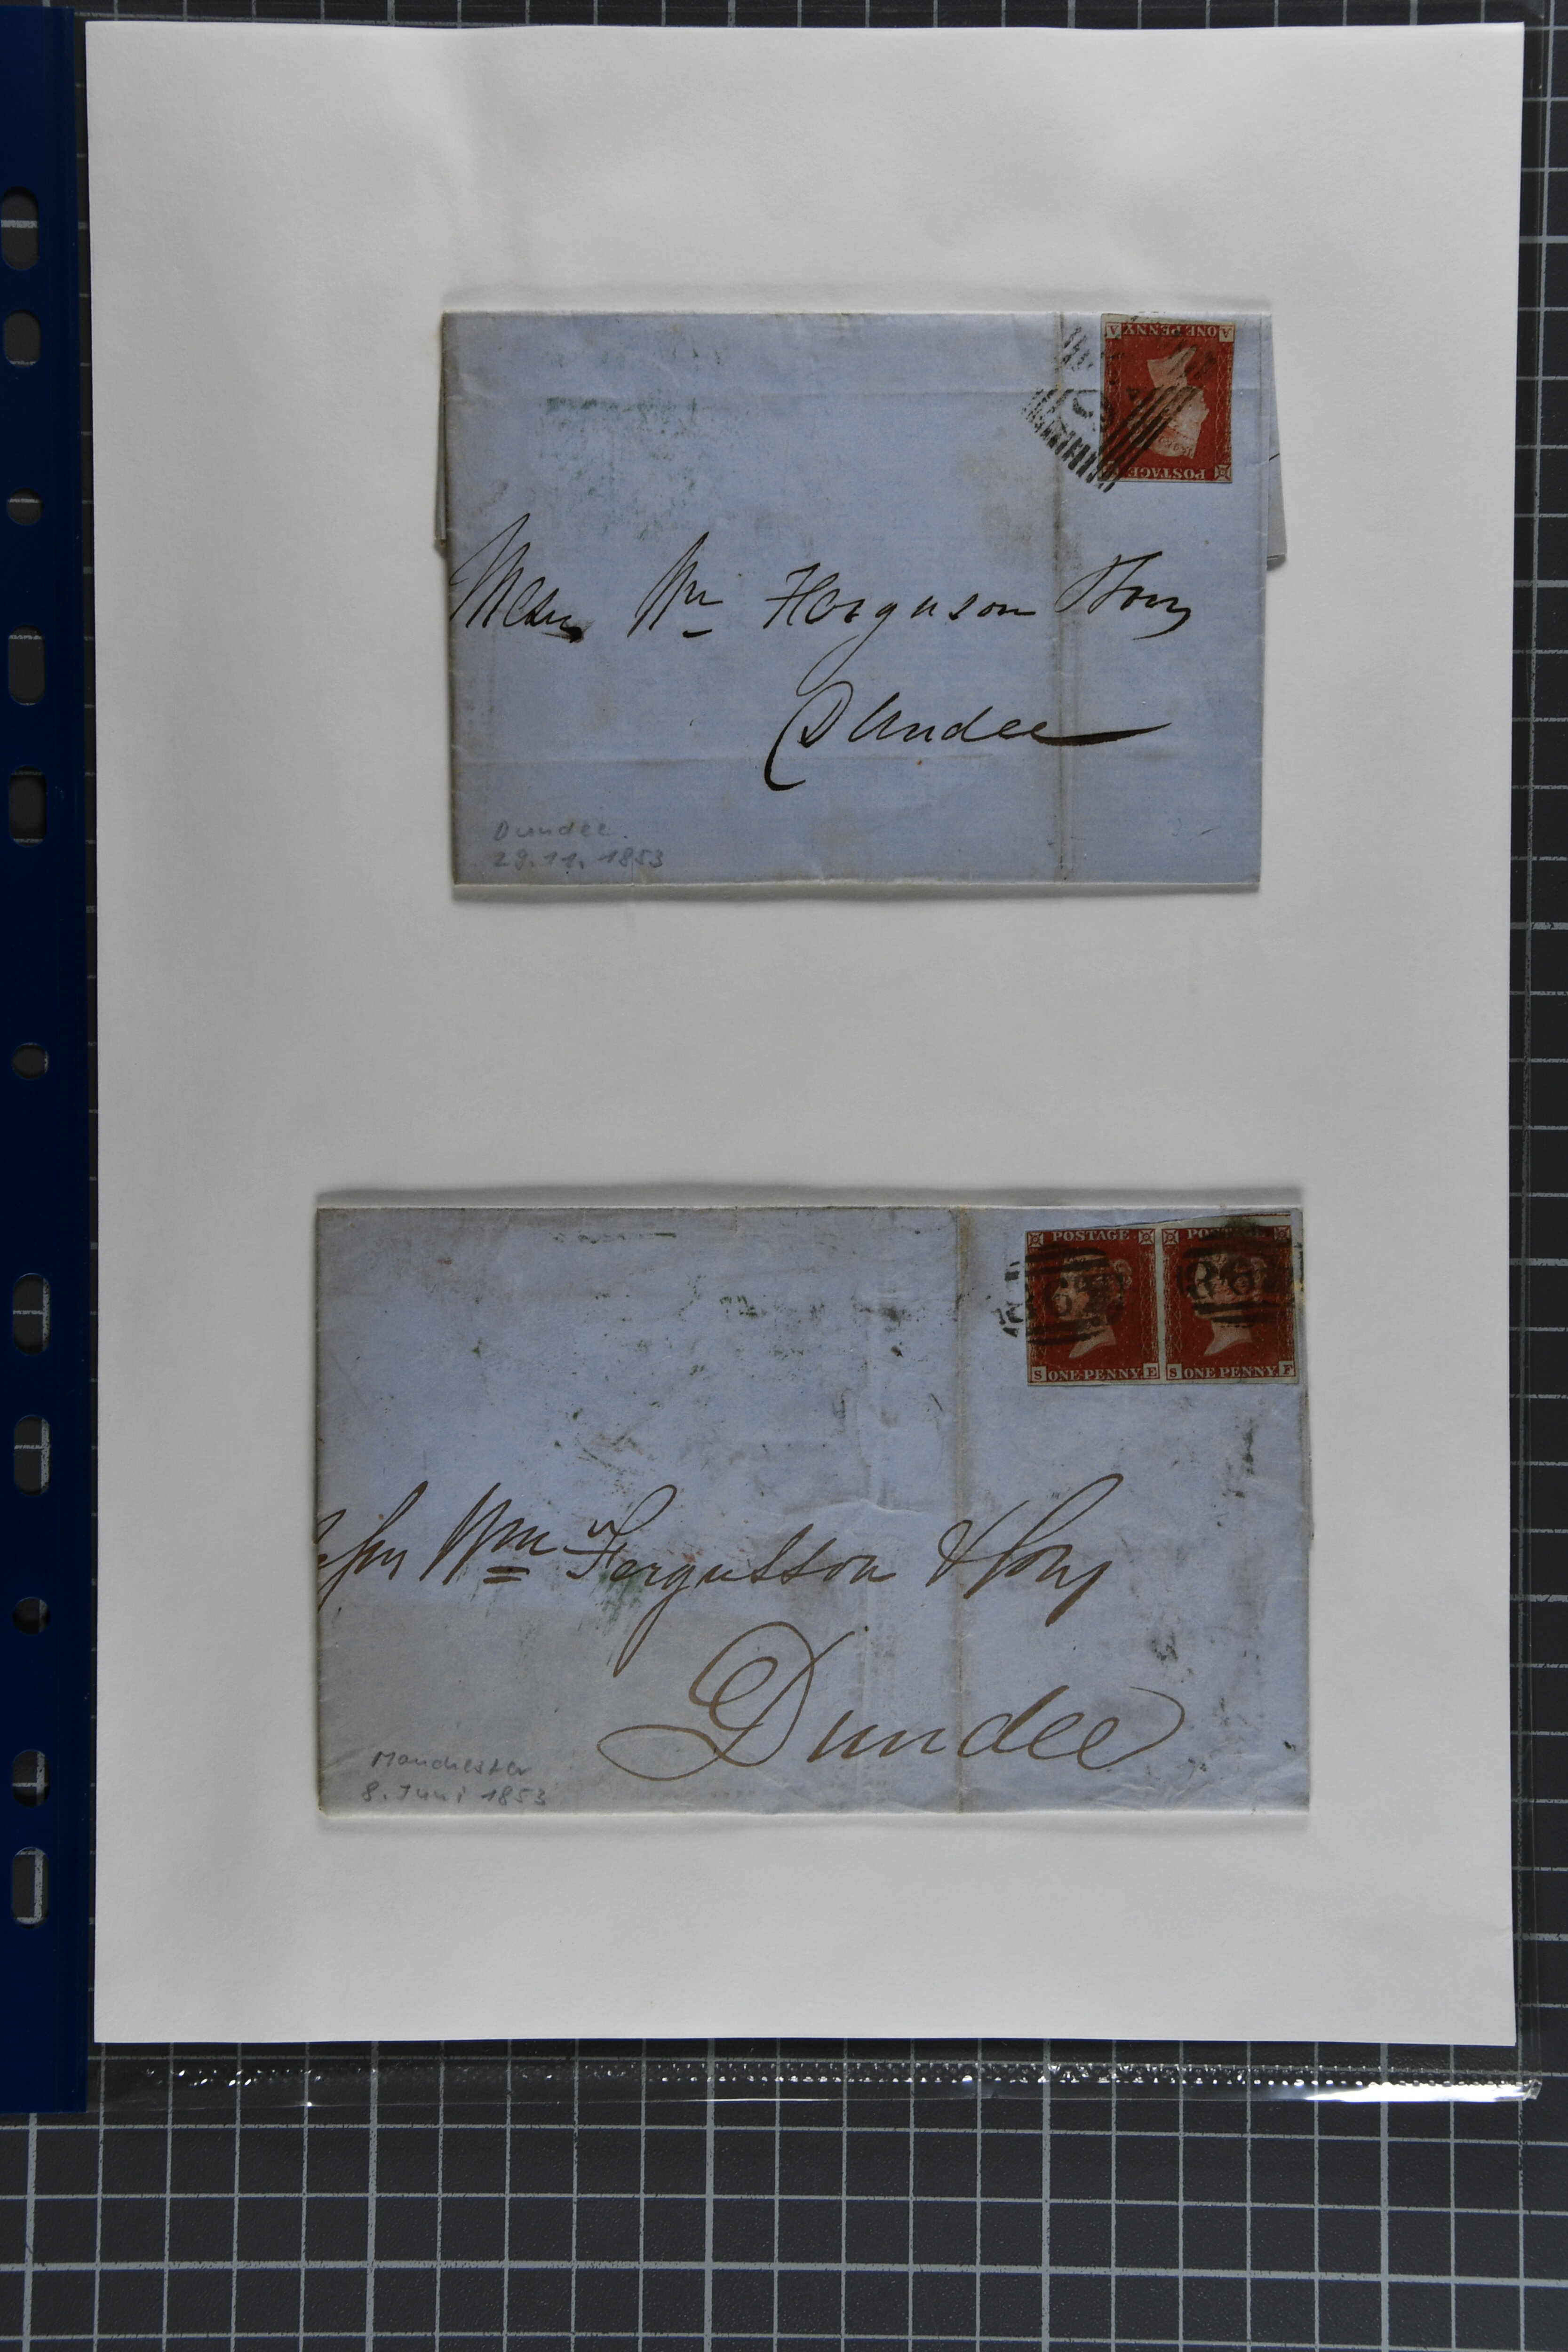 A ONE PENNY A
POSTAGE
Messrs Wm Ferguson & Sons
Dundee
Dundee.
29.11.1853
POSTAGE POSTAGE
S ONE PENNY E S ONE PENNY F
Wm Fergusson & Sons
Dundee
Manchester
8. Juni 1853